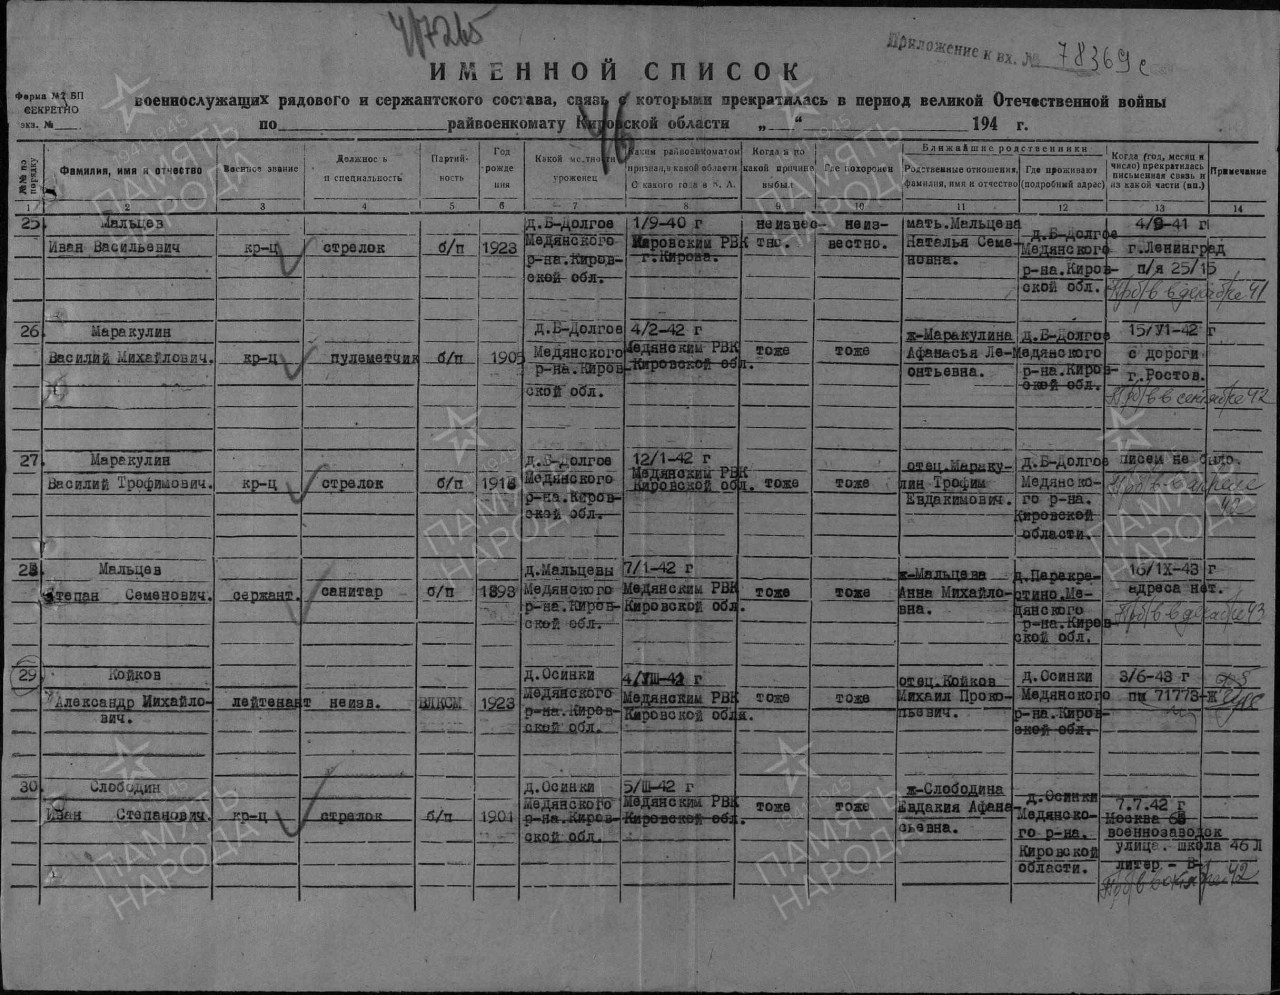 4/7265
Приложение к вх. № 78369с
ИМЕННОЙ СПИСОК
Форма №2 БП
СЕКРЕТНО
экз. №
военнослужащих рядового и сержантского состава, связь с которыми прекратилась в период великой Отечественной войны
по райвоенкомату Кировской области „ “ 194 г.
46
№№ по порядку
Фамилия, имя и отчество
Военное звание
Должность и специальность
Партийность
Год рождения
Какой местности уроженец
Каким райвоенкоматом призван, в какой области С какого года в К. А.
Когда и по какой причине выбыл
Где похоронен
Ближайшие родственники
Родственные отношения, фамилия, имя и отчество
Где проживают (подробный адрес)
Когда (год, месяц и число) прекратилась письменная связь и из какой части (пп.)
Примечание
1 2 3 4 5 6 7 8 9 10 11 12 13 14
25 Мальцев д.Б-Долгое 1/9-40 г неизвес- неиз- мать.Мальцева 4/9-41 г
Иван Васильевич кр-ц стрелок б/п 1923 Медянского Кировским РВК тно. вестно. Наталья Семе- д.Б-Долгое
р-на.Киров- г.Кирова. новна. Медянского г.Ленинград
ской обл. р-на.Киров- п/я 25/15
ской обл. Пр б/в в декабре 41
26 Маракулин д.Б-Долгое 4/2-42 г ж-Маракулина д.Б-Долгое 15/У1-42 г
Василий Михайлович. кр-ц пулеметчик б/п 1905 Медянского Медянским РВК тоже тоже Афанасья Ле- Медянского с дороги
р-на.Киров- Кировской обл. онтьевна. р-на.Киров- г.Ростов.
ской обл. ской обл. Пр б/в в сентябре 42
27 Маракулин д.Б-Долгое 12/1-42 г отец.Мараку- д.Б-Долгое писем не было.
Василий Трофимович. кр-ц стрелок б/п 1916 Медянского Медянским РВК тоже тоже лин Трофим Медянско- Пр б/в в апреле
р-на.Киров- Кировской обл. Евдакимович. го р-на. 42
ской обл. Кировской
области.
28 Мальцев д.Мальцевы 7/1-42 г ж-Мальцева д.Перекре- 16/1Х-43 г
Степан Семенович. сержант. санитар б/п 1893 Медянского Медянским РВК тоже тоже Анна Михайло- стино.Ме- адреса нет.
р-на.Киров- Кировской обл. вна. дянского Пр б/в в декабре 43
ской обл. р-на.Киров-
ской обл.
29 Койков д.Осинки 4/УШ-41 г отец.Койков д.Осинки 3/6-43 г
Александр Михайло- лейтенант неизв. ВЛКСМ 1923 Медянского Медянским РВК тоже тоже Михаил Проко- Медянского пп 71773-Ж
вич. р-на.Киров- Кировской обля. пьевич. р-на.Киров-
ской обл. ской обл.
30 Слободин д.Осинки 5/Ш-42 г ж-Слободина д.Осинки
Иван Степанович. кр-ц стрелок б/п 1901 Медянского Медянским РВК тоже тоже Евдакия Афана- Медянско- 7.7.42 г
р-на.Киров- Кировской обл. сьевна. го р-на. Москва 68
ской обл. Кировской военнозаводок
области. улица. школа 46 Л
литер - В-1
Пр б/в в октябре 42
ПАМЯТЬ НАРОДА
1941-1945